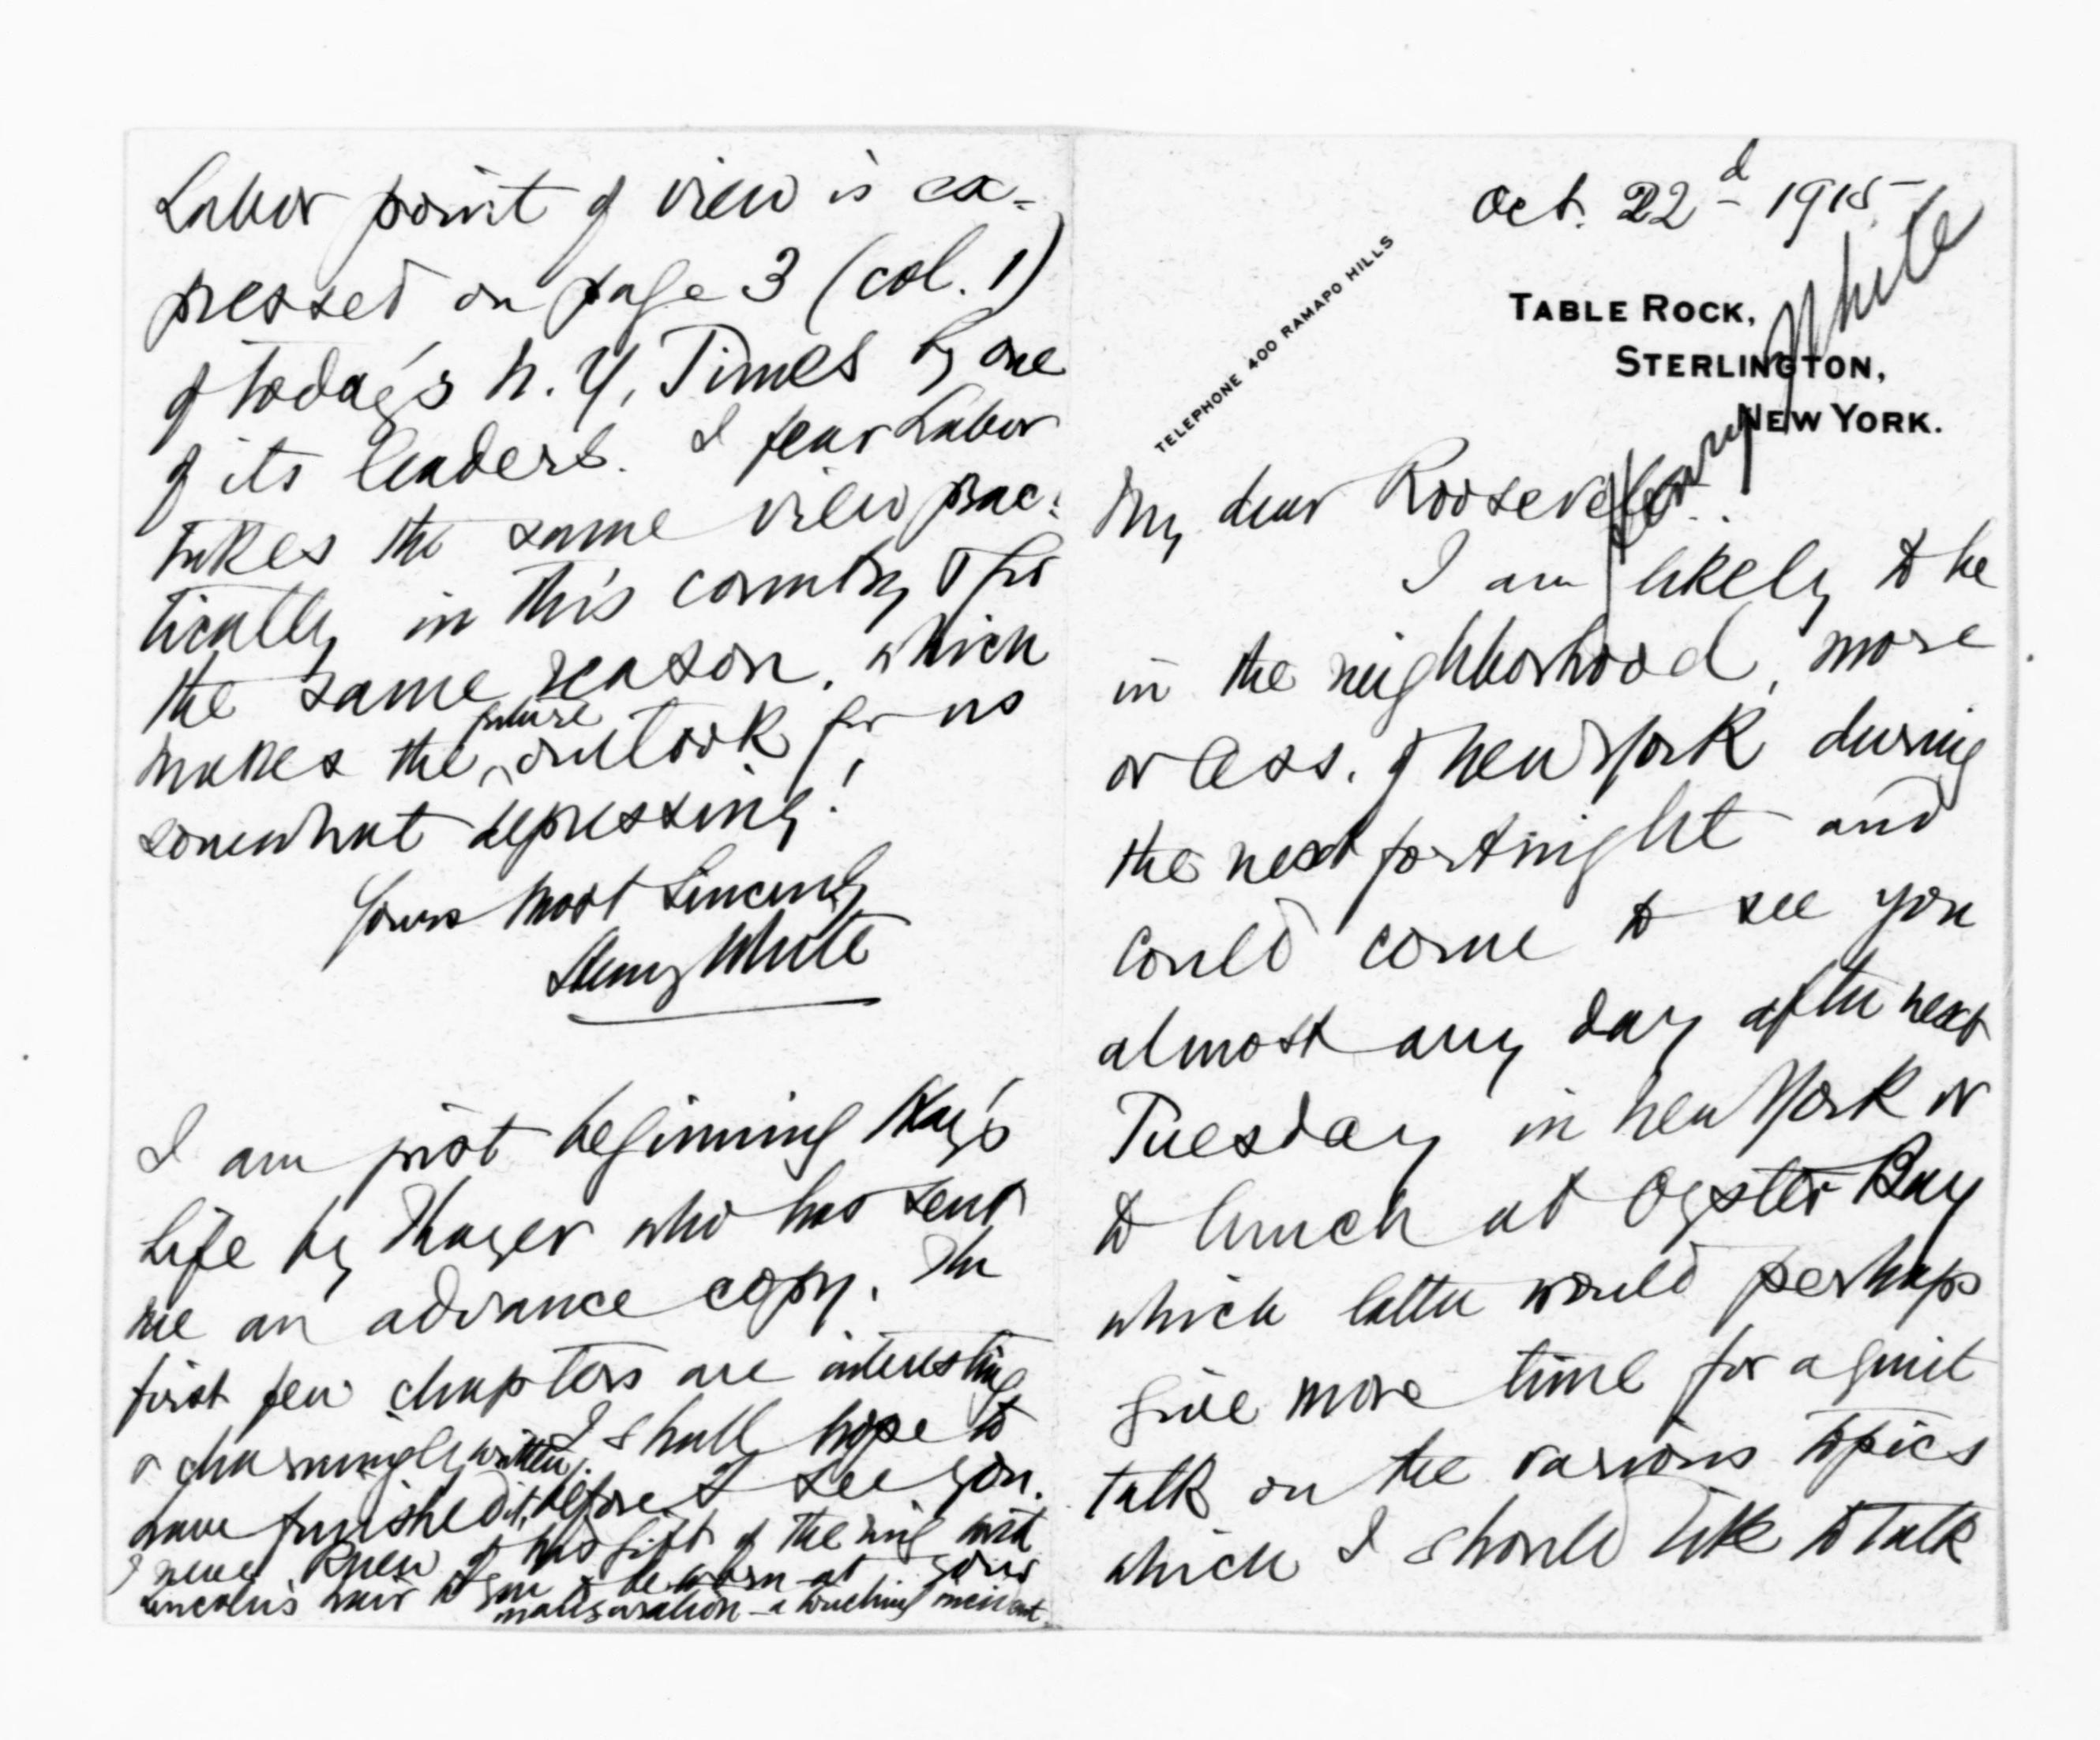 Oct. 22d 1915
TELEPHONE 400 RAMAPO HILLS
TABLE ROCK,
STERLINGTON,
NEW YORK.
Henry White
My dear Roosevelt
I am likely to be
in the neighborhood, more
or less, of New York during
the next fortnight and
could come to see you
almost any day after next
Tuesday in New York or
to lunch at Oyster Bay
which latter would perhaps
give more time for a quiet
talk on the various topics
which I should like to talk
Labor point of view is ex-
pressed on page 3 (col. 1)
of today's N.Y. Times by one
of its leaders. I fear Labor
takes the same view prac:
tically in this country & for
the same reason, which
makes the future outlook for us
somewhat depressing!
Yours most sincerely
Henry White
I am just beginning Hay's
Life by Thayer who has sent
me an advance copy. The
first few chapters are interesting
& charmingly written. I shall hope to
have finished it, before I see you.
I never knew of his gift of the ring with
Lincoln's hair to you to be worn at your
inauguration - a touching incident.